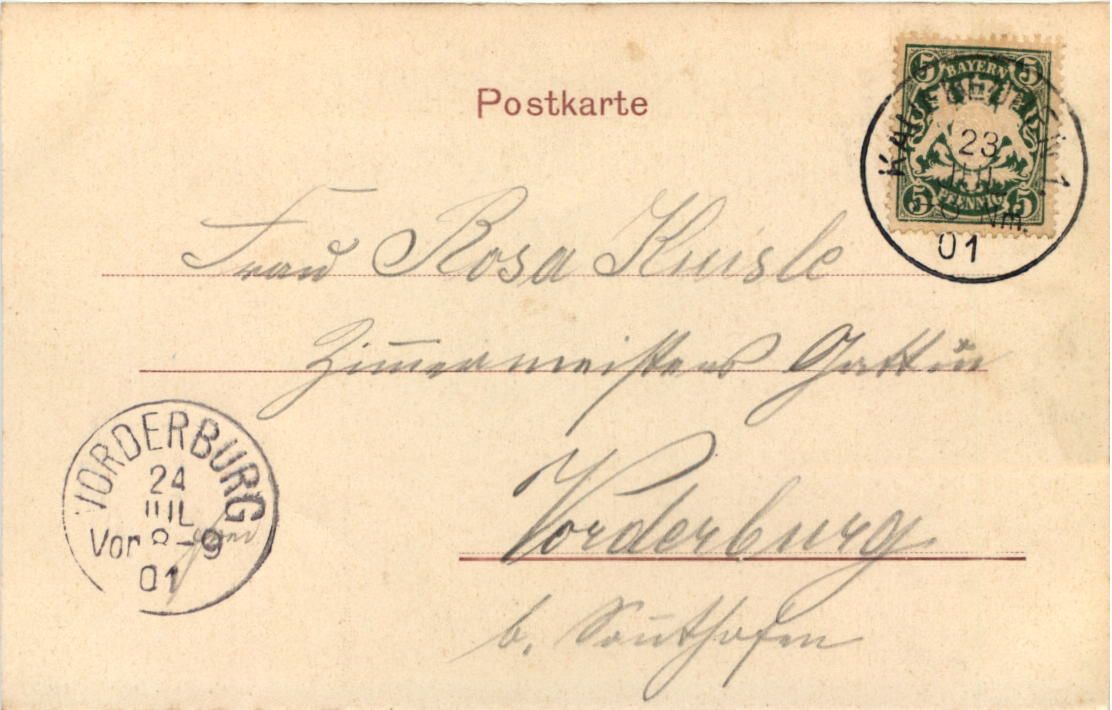 Postkarte
5 BAYERN 5
5 PFENNIG 5
KAUFBEUREN 1
23
JUL
Nm.
01
Frau Rosa Kuisle
Zimmermeisters Gattin
Vorderburg
b. Sonthofen
VORDERBURG
24
JUL
Vor 8-9
01